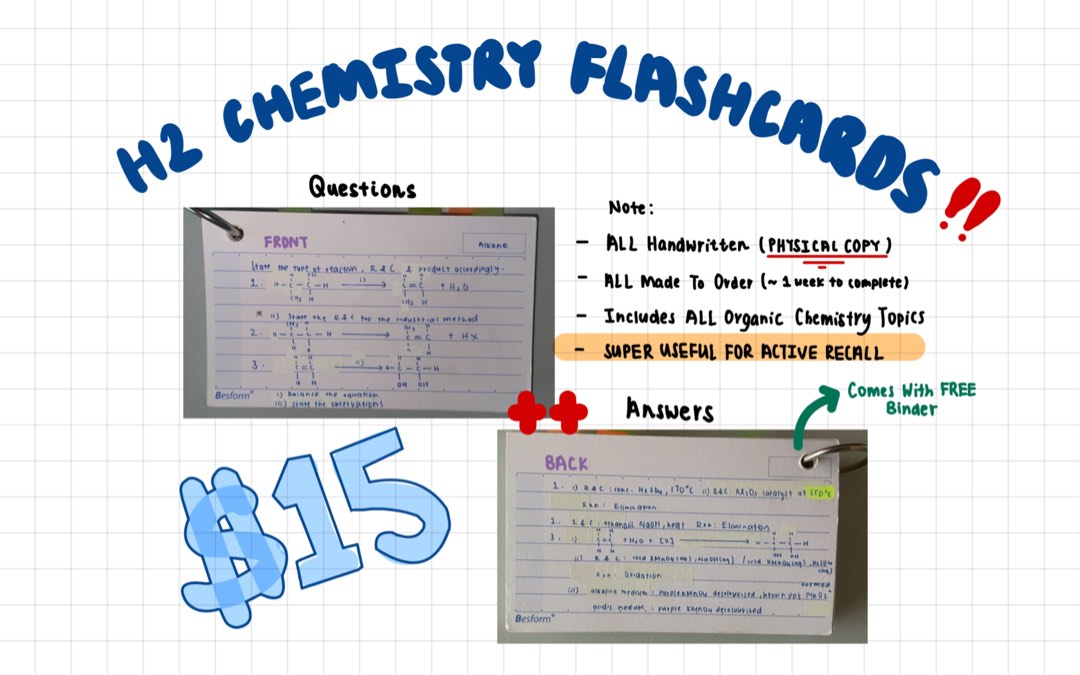 H2 CHEMISTRY FLASHCARDS!!
Questions
FRONT
Alkene
State the type of reaction, R&C & product accordingly.
1. H-C-C-H i) C=C + H2O
CH3 H CH3 H
* ii) State the R&C for the industrial method
2. H-C-C-H C=C + HX
3. C=C ii) H-C-C-H
H H OH OH
i) Balance the equation
iii) State the observations
Besform
Note:
- ALL Handwritten (PHYSICAL COPY)
- ALL Made To Order (~ 1 week to complete)
- Includes ALL Organic Chemistry Topics
- SUPER USEFUL FOR ACTIVE RECALL
Comes With FREE
Binder
Answers
BACK
1. i) R&C: conc. H2SO4, 170°C ii) R&C: Al2O3 catalyst at 350°C
Rxn: Elimination
2. R&C: ethanolic NaOH, heat Rxn: Elimination
3. i) C=C + H2O + [O] H-C-C-H
OH OH
ii) R&C: cold KMnO4(aq), NaOH(aq) / cold KMnO4(aq), H2SO4
(aq)
Rxn: Oxidation
formed
iii) alkaline medium: purple KMnO4 decolourised, brown ppt MnO2
acidic medium: purple KMnO4 decolourised
Besform
$15